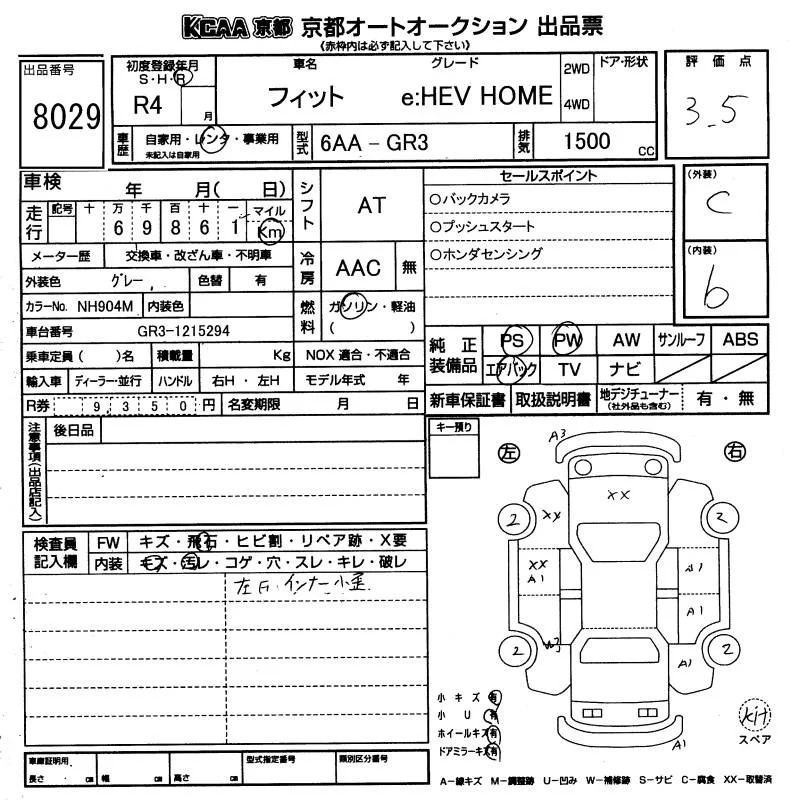 KCAA 京都 京都オートオークション 出品票
《赤枠内は必ず記入して下さい》
出品番号
8029
初度登録年月
S・H・R
R4 月
車名
フィット
グレード
e:HEV HOME
2WD
4WD
ドア・形状
評価点
3.5
車歴
自家用・レンタ・事業用
未記入は自家用
型式
6AA－GR3
排気
1500 cc
車検 年 月( 日)
シフト
AT
セールスポイント
○バックカメラ
○プッシュスタート
○ホンダセンシング
(外装)
C
(内装)
b
走行
記号 十 万 千 百 十 一 マイル
6 9 8 6 1 Km
メーター歴 交換車・改ざん車・不明車
冷房
AAC 無
外装色 グレー 色替 有
カラーNo. NH904M 内装色
燃料
ガソリン・軽油
( )
車台番号 GR3-1215294
乗車定員 ( )名 積載量 Kg NOX 適合・不適合
輸入車 ディーラー・並行 ハンドル 右H ・ 左H モデル年式 年
R券 9,350円 名変期限 月 日
純正装備品
PS PW AW サンルーフ ABS
エアバック TV ナビ
新車保証書 取扱説明書 地デジチューナー (社外品も含む) 有 ・ 無
注意事項(出品店記入)
後日品
キー預り
左 右
A3
XX
XX
2 2
XX
A1
A1
A1
2 2
A1
A1
検査員記入欄
FW キズ・飛石・ヒビ割・リペア跡・X要
内装 キズ・汚レ・コゲ・穴・スレ・キレ・破レ
左F.インナー小歪
小キズ 有
小 U 有
ホイールキズ 有
ドアミラーキズ 有
kit
スペア
車庫証明用
長さ cm 幅 cm 高さ cm
型式指定番号
類別区分番号
A－線キズ M－調整跡 U－凹み W－補修跡 S－サビ C－腐食 XX－取替済